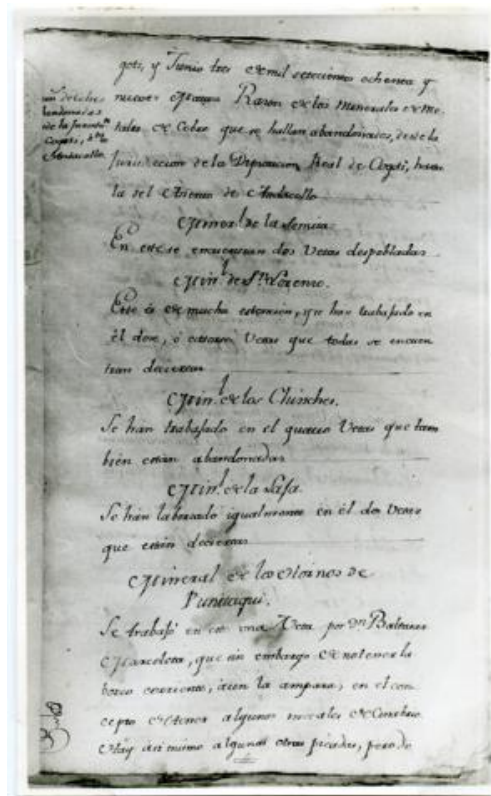 goti, y Junio tres de mil setecientos ochenta y
nueve. Razon de los Minerales de Me-
tales de Cobre que se hallan abandonados, desde la
Jurisdiccion de la Diputacion Real de Cogoti, hasta
la del Asiento de Andacollo
de la Jurisdn.
Cogoti,
Andacollo.
Minerl. de la
En este se encuentran dos Vetas despobladas
Minl. de Sn. Lorenzo.
Este es de mucha estencion, que han trabajado en
él dose, ó catorse Vetas que todas se encuen
tran deciertas
Minl. de los Chinches.
Se han trabajado en el quatro Vetas que tam
bien estan abandonadas
Minl. de la
Se han labrado igualmente en él dos Vetas
que están deciertas
Mineral de los Hornos de
Punitaqui.
Se trabajó en este una Veta por Dn. Baltasar
que sin embargo de no tener la
corriente, aun la ampara, en el con-
cepto de tener algunos metales
Hay asi mismo algunas otras picadas, pero de